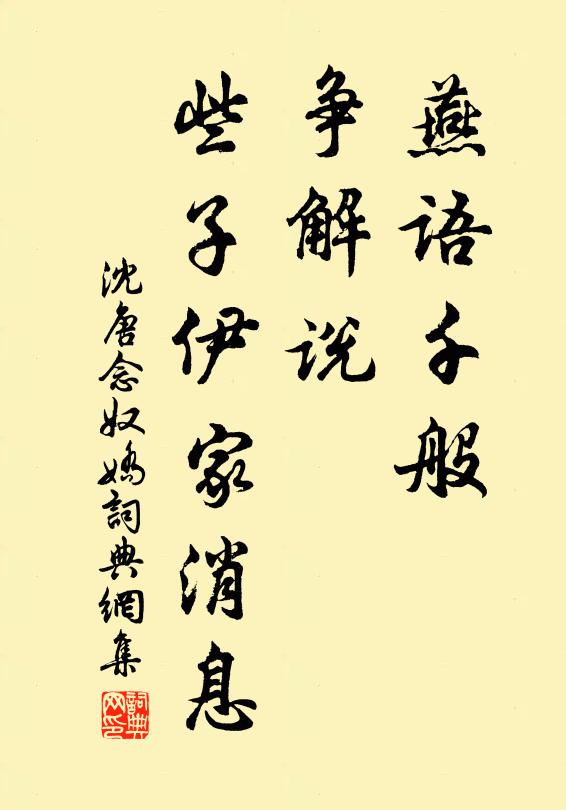 燕語千般
争解説
些子伊家消息
沈唐念奴嬌詞典網集
詞典网印